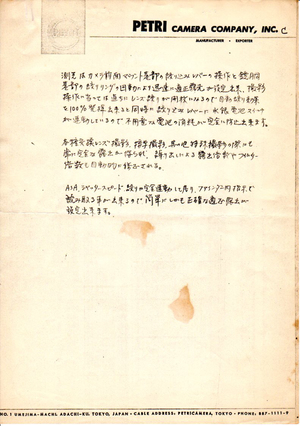 PETRI CAMERA COMPANY, INC.
MANUFACTURER • EXPORTER
測光はカメラ前面マウント基部の絞り込みレバーの操作と鏡胴
基部の絞りリングの回動により迅速に適正露光が設定出来、撮影
操作に当っては直ちにレンズ絞りが開放になるので自動絞り効果
を100%発揮出来ると同時に絞り込みレバーに水銀電池スイッチ
が連動しているので不用意な電池の消耗が完全に防止出来ます。
各種交換レンズ撮影、接写撮影、其の他特殊撮影の際にも
常に完全な露光が得られ、誤り
倍数も自動的に修正される。
ASA、シャッタースピード、絞りが完全連動して居り、ファインダー内指示で
読み取る事が出来るので簡単にしかも正確な適正露光が
設定出来ます。
NO. 1 UMEJIMA-MACHI, ADACHI-KU, TOKYO, JAPAN • CABLE ADDRESS: PETRICAMERA, TOKYO • PHONE: 887-1111-9